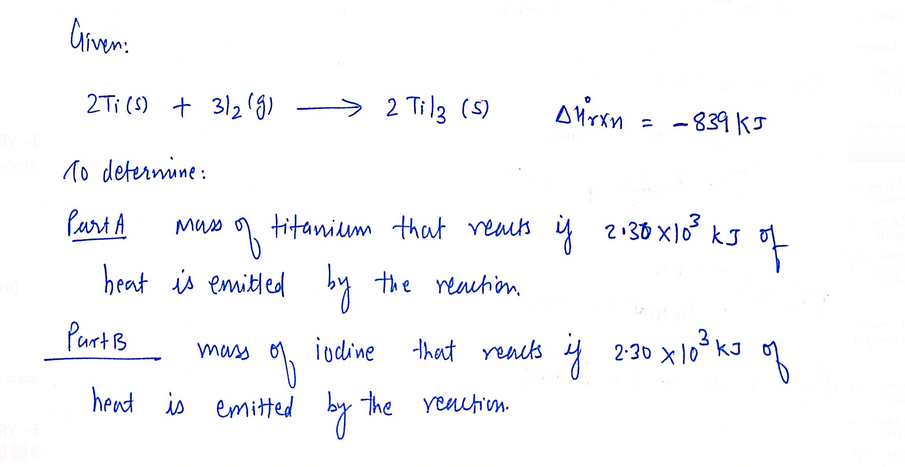 Given:
2Ti(s) + 3I2(g) ⟶ 2 TiI3 (s) ΔH°rxn = -839 kJ
To determine:
Part A mass of titanium that reacts if 2.30 ×10³ kJ of
heat is emitted by the reaction.
Part B mass of iodine that reacts if 2.30 ×10³ kJ of
heat is emitted by the reaction.